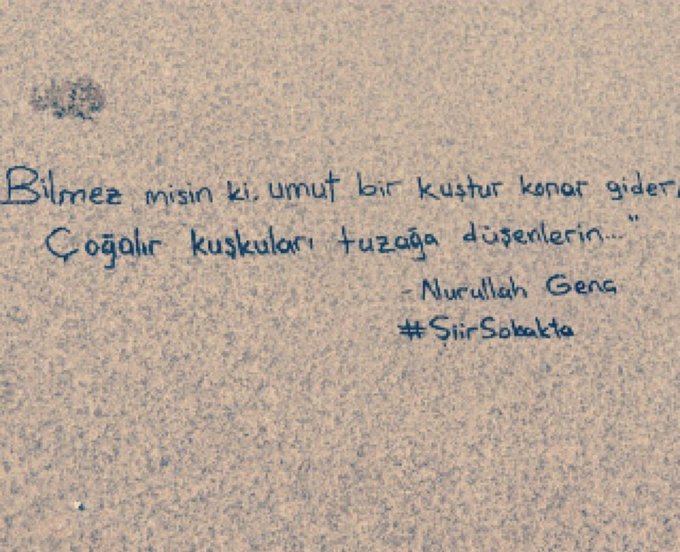 Bilmez misin ki, umut bir kuştur konar gider,
Çoğalır kuşkuları tuzağa düşenlerin..."
- Nurullah Genç
#ŞiirSokakta